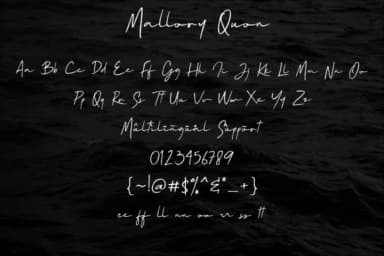 Mallory Quon
Aa Bb Cc Dd Ee Ff Gg Hh Ii Jj Kk Ll Mm Nn Oo
Pp Qq Rr Ss Tt Uu Vv Ww Xx Yy Zz
Multilingual Support
0123456789
{~!@#$%^&*_+}
ee ff ll nn oo rr ss tt